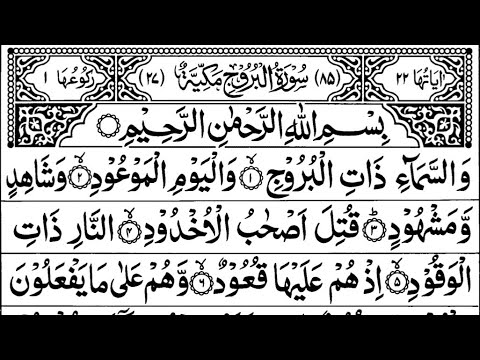 اٰیَاتُهَا ۲۲ (۸۵) سُوْرَةُ الْبُرُوْجِ مَكِّیَّةٌ (۲۷) رُكُوْعُهَا ۱
بِسْمِ اللهِ الرَّحْمٰنِ الرَّحِیْمِ
وَالسَّمَآءِ ذَاتِ الْبُرُوْجِ ۙ۱ وَالْیَوْمِ الْمَوْعُوْدِ ۙ۲ وَشَاهِدٍ
وَّمَشْهُوْدٍ ؕ۳ قُتِلَ اَصْحٰبُ الْاُخْدُوْدِ ۙ۴ النَّارِ ذَاتِ
الْوَقُوْدِ ۙ۵ اِذْ هُمْ عَلَیْهَا قُعُوْدٌ ۙ۶ وَّهُمْ عَلٰی مَا یَفْعَلُوْنَ